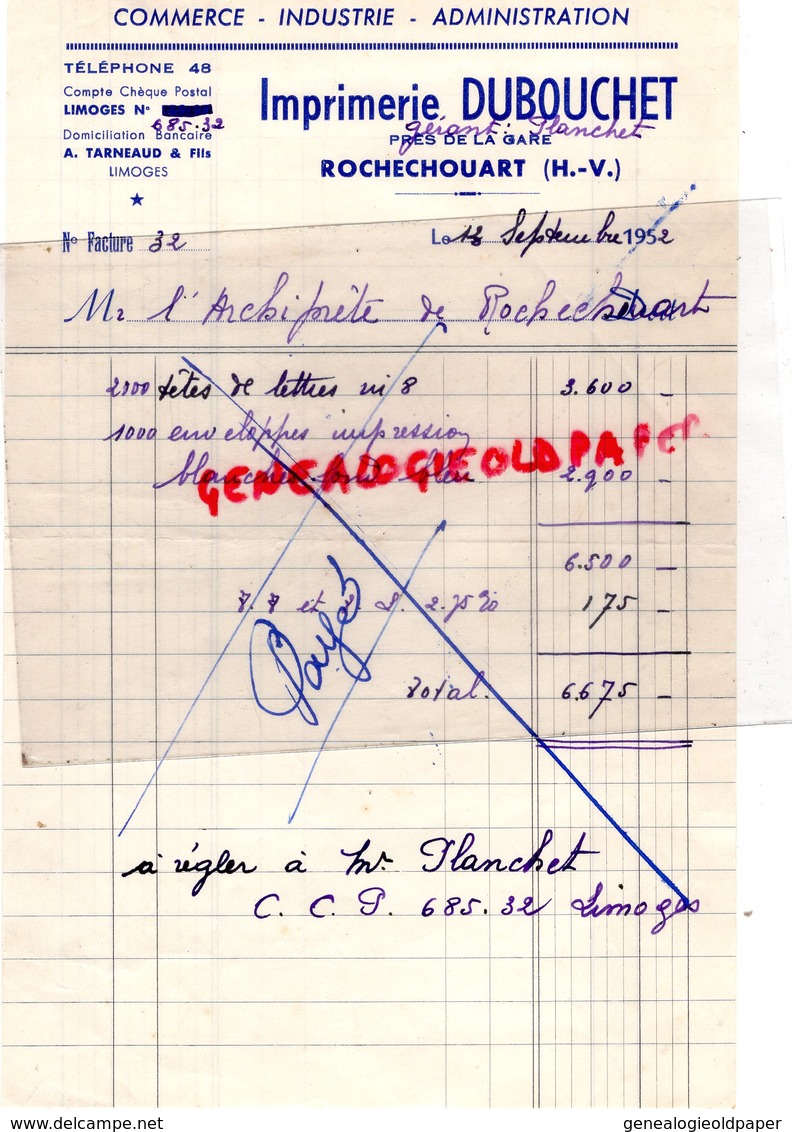 COMMERCE - INDUSTRIE - ADMINISTRATION
TÉLÉPHONE 48
Compte Chèque Postal
LIMOGES N°
685.32
Domiciliation Bancaire
A. TARNEAUD & Fils
LIMOGES
Imprimerie DUBOUCHET
gérant: Planchet
PRÈS DE LA GARE
ROCHECHOUART (H.-V.)
N° Facture 32
Le 12 Septembre 1952
Mr l'Archiprête de Rochechouart
2000 têtes de lettres in 8 3.600 —
1000 enveloppes impression
blanches fond bleu 2.900 —
GENEALOGIEOLDPAPER
6.500 —
et 2.75% 175 —
Payé
Total. 6.675 —
à régler à Mr. Planchet
C. C. P. 685.32 Limoges
genealogieoldpaper